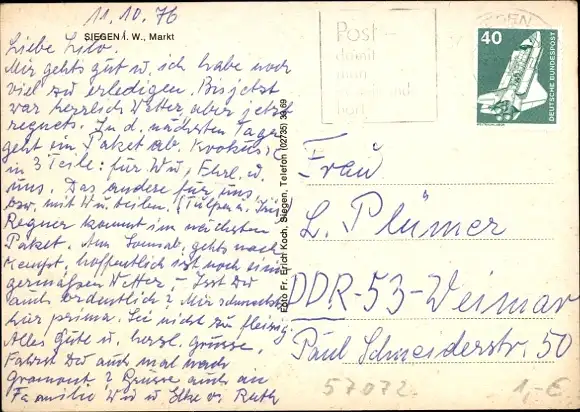 11.10.76
SIEGEN i. W., Markt
Liebe Lilo.
Mir gehts gut u. ich habe noch
viel zu erledigen. Bis jetzt
war herrlich Wetter aber jetzt
regnets. In d. nächsten Tagen
geht ein Paket ab. Krokus:
in 3 Teile: für Wu, Ehrl. u.
uns. Das andere für uns
bzw. mit Wu. teilen. (Tulpen u.
Regner kommt im nächsten
Paket. Am Sonnab. gehts nach
Kempt, hoffentlich ist noch einiger
germaßen Wetter. – Isst Du
auch ordentlich? Mir schmeckts
hier prima. Sei nicht zu fleissig.
Alles Gute u. herzl. Grüsse.
Fährst Du auch mal nach
Gramont? Grüsse auch an
Familie Wu u Elke v. Ruth
Foto Fr. Erich Koch, Siegen, Telefon (02735) 3469
Post-
damit
man
in
hört
SIEGEN
40
DEUTSCHE BUNDESPOST
Frau
L. Plümer
DDR-53-Weimar
Paul Schneiderstr. 50
57072
1,-€